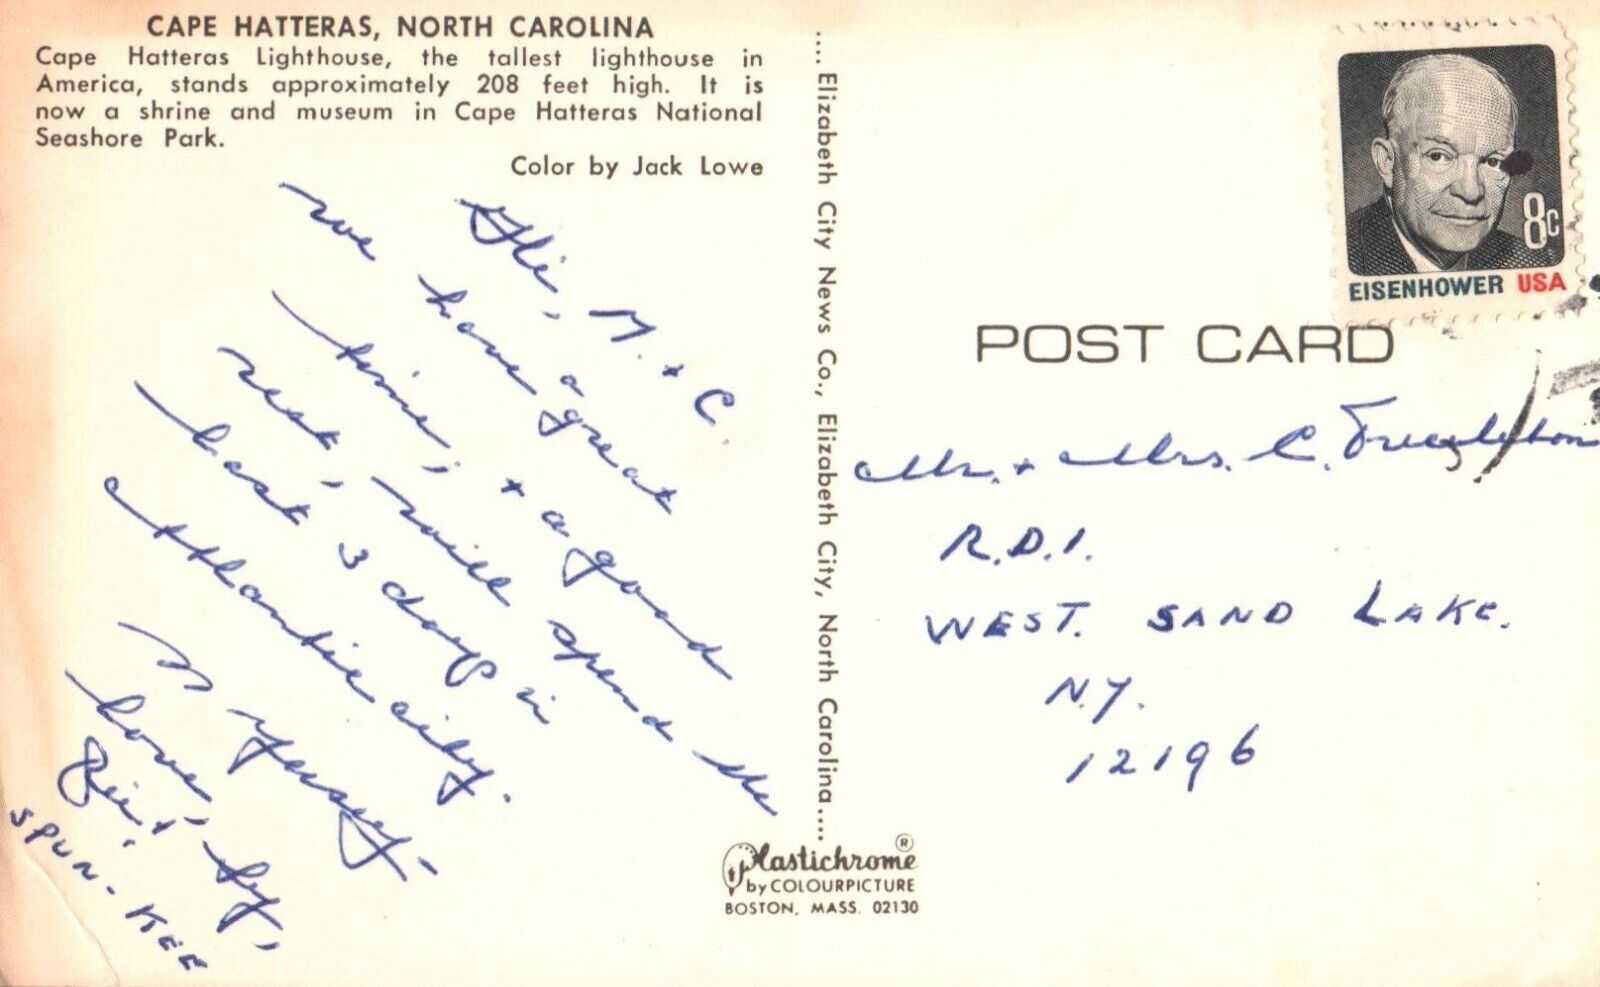 CAPE HATTERAS, NORTH CAROLINA
Cape Hatteras Lighthouse, the tallest lighthouse in
America, stands approximately 208 feet high. It is
now a shrine and museum in Cape Hatteras National
Seashore Park.
Color by Jack Lowe
Hi, M. + C.
we have a great
time, + a good
rest, will spend the
last 3 days in
Attlantic city.
N Yersey-
Love,
+ Sy,
SPUN-KEE
.... Elizabeth City News Co., Elizabeth City, North Carolina....
Plastichrome ®
by COLOURPICTURE
BOSTON, MASS. 02130
8c
EISENHOWER USA
POST CARD
Mr. + Mrs. C.
R.D.1.
WEST. SAND LAKE.
N.Y.
12196